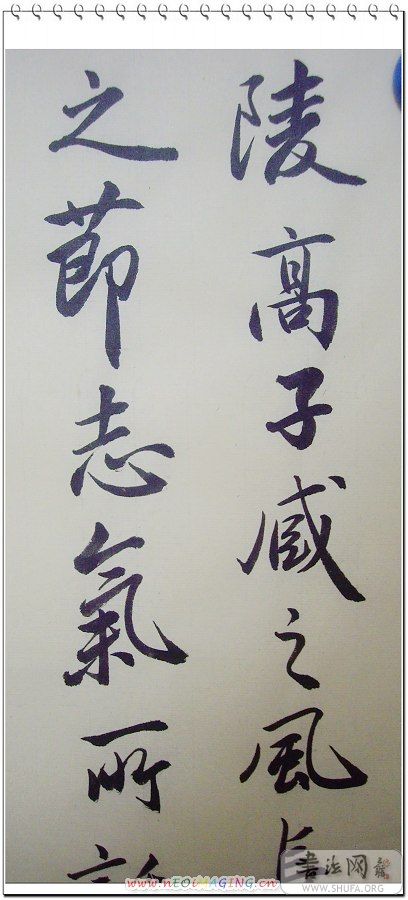 陵高子臧之風
之節志氣所
書法网
WWW.SHUFA.ORG
www.nEOiMAGING.cn